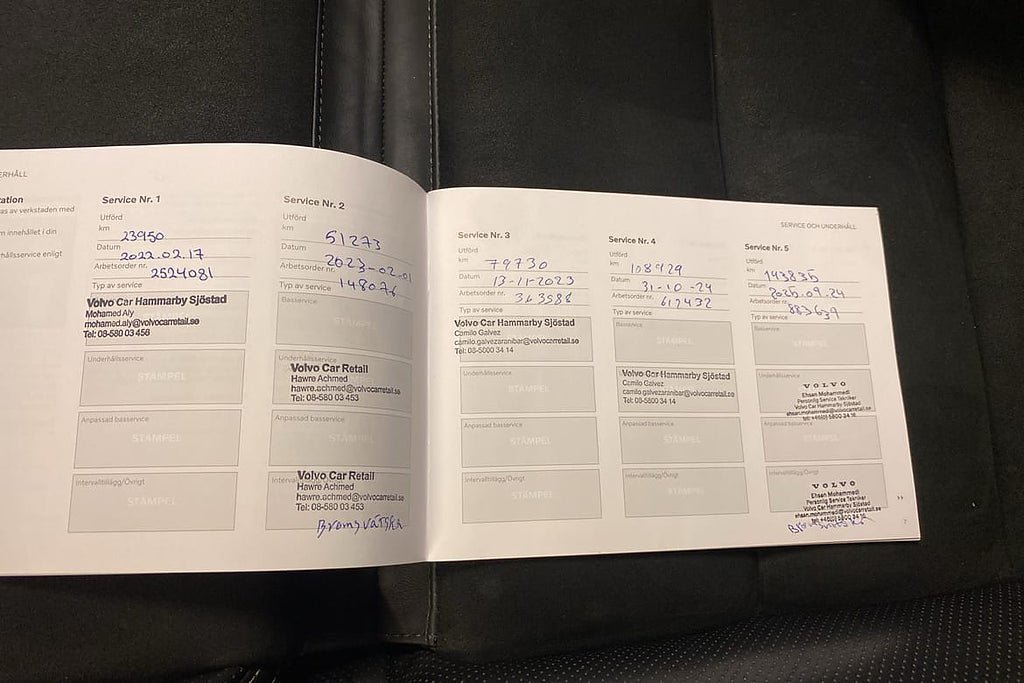 ERHÅLL
tation
as av verkstaden med
m innehållet i din
hållsservice enligt
Service Nr. 1
Utförd
km 23950
Datum 2022.02.17
Arbetsorder nr. 2524081
Typ av service
Volvo Car Hammarby Sjöstad
Mohamed Aly
mohamed.aly@volvocarretail.se
Tel: 08-580 03 456
Underhållsservice
STÄMPEL
Anpassad basservice
STÄMPEL
Intervalltillägg/Övrigt
STÄMPEL
Service Nr. 2
Utförd
km 51273
Datum 2023-02-01
Arbetsorder nr.
Typ av service 148076
Basservice
STÄMPEL
Underhållsservice
Volvo Car Retail
Hawre Achmed
hawre.achmed@volvocarretail.se
Tel: 08-580 03 453
Anpassad basservice
STÄMPEL
Volvo Car Retail
Hawre Achmed
hawre.achmed@volvocarretail.se
Tel: 08-580 03 453
Bromsvätska
Service Nr. 3
Utförd
km 79730
Datum 13-11-2023
Arbetsorder nr. 363586
Typ av service
Volvo Car Hammarby Sjöstad
Camilo Galvez
camilo.galvezaranibar@volvocarretail.se
Tel: 08-5000 34 14
Underhållsservice
STÄMPEL
Anpassad basservice
STÄMPEL
Intervalltillägg/Övrigt
STÄMPEL
Service Nr. 4
Utförd
km 108929
Datum 31-10-24
Arbetsorder nr. 612432
Typ av service
Basservice
STÄMPEL
Underhållsservice
Volvo Car Hammarby Sjöstad
Camilo Galvez
camilo.galvezaranibar@volvocarretail.se
Tel: 08-5800 34 14
Anpassad basservice
STÄMPEL
Intervalltillägg/Övrigt
STÄMPEL
SERVICE OCH UNDERHÅLL
Service Nr. 5
Utförd
km 143835
Datum 2025.09.24
Arbetsorder nr. 883639
Typ av service
Basservice
STÄMPEL
Underhållsservice
VOLVO
Ehsan Mohammedi
Personlig Service Tekniker
Volvo Car Hammarby Sjöstad
ehsan.mohammedi@volvocarretail.se
tel: +46(0) 5800 34 16
Anpassad basservice
STÄMPEL
Intervalltillägg/Övrigt
VOLVO
Ehsan Mohammedi
Personlig Service Tekniker
Volvo Car Hammarby Sjöstad
ehsan.mohammedi@volvocarretail.se
tel: +46(0) 5800 34 16
Bromsvätska
››
7